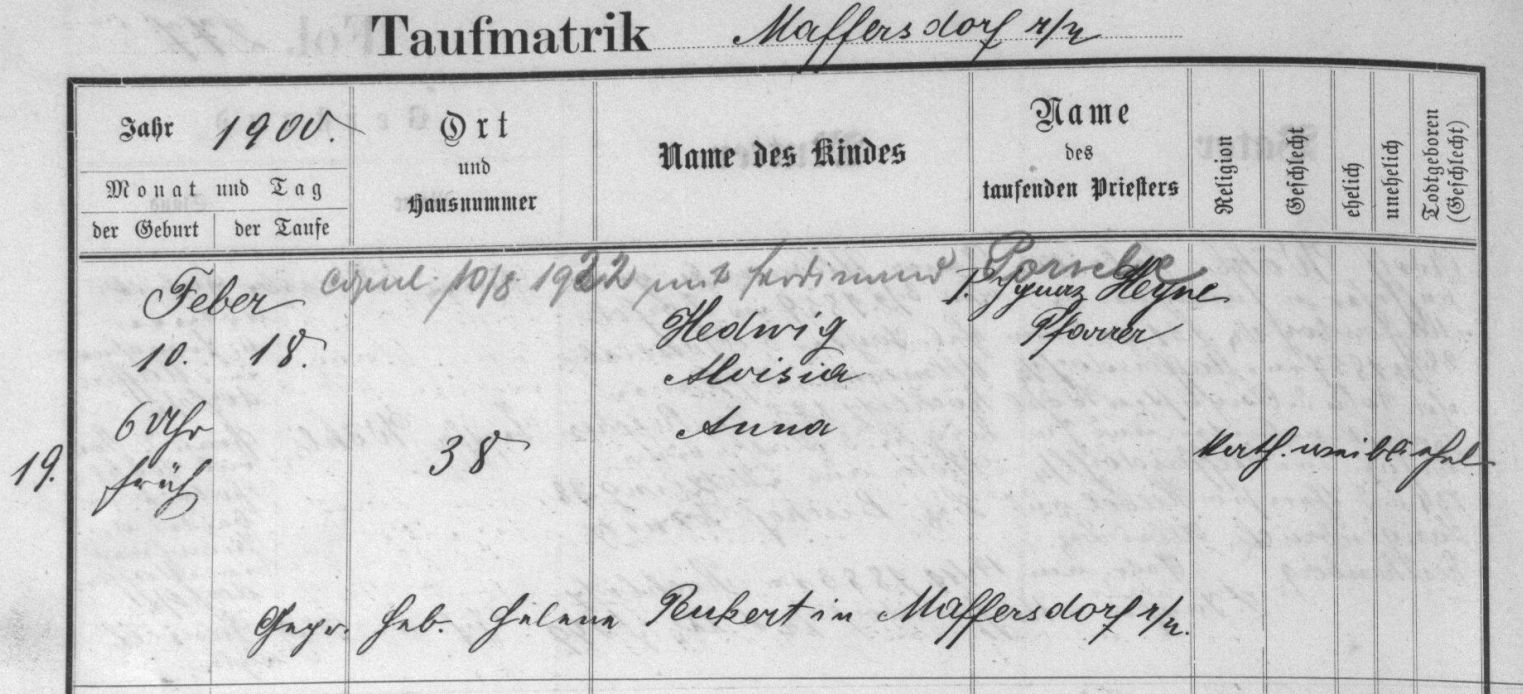 Taufmatrik Maffersdorf r/N
Jahr 1900.
Monat und Tag
der Geburt
der Taufe
Ort
und
Hausnummer
Name des Kindes
Name
des
taufenden Priesters
Religion
Geschlecht
ehelich
unehelich
Todtgeboren
(Geschlecht)
Copul. 10/8 1922 mit Ferdinand
Feber
10. 18.
6 Uhr
früh
19.
38
Hedwig
Aloisia
Anna
P. Ignaz Heyne
Pfarrer
kath. weibl. ehel.
Gepr. Heb. Helene Peukert in Maffersdorf r/N.